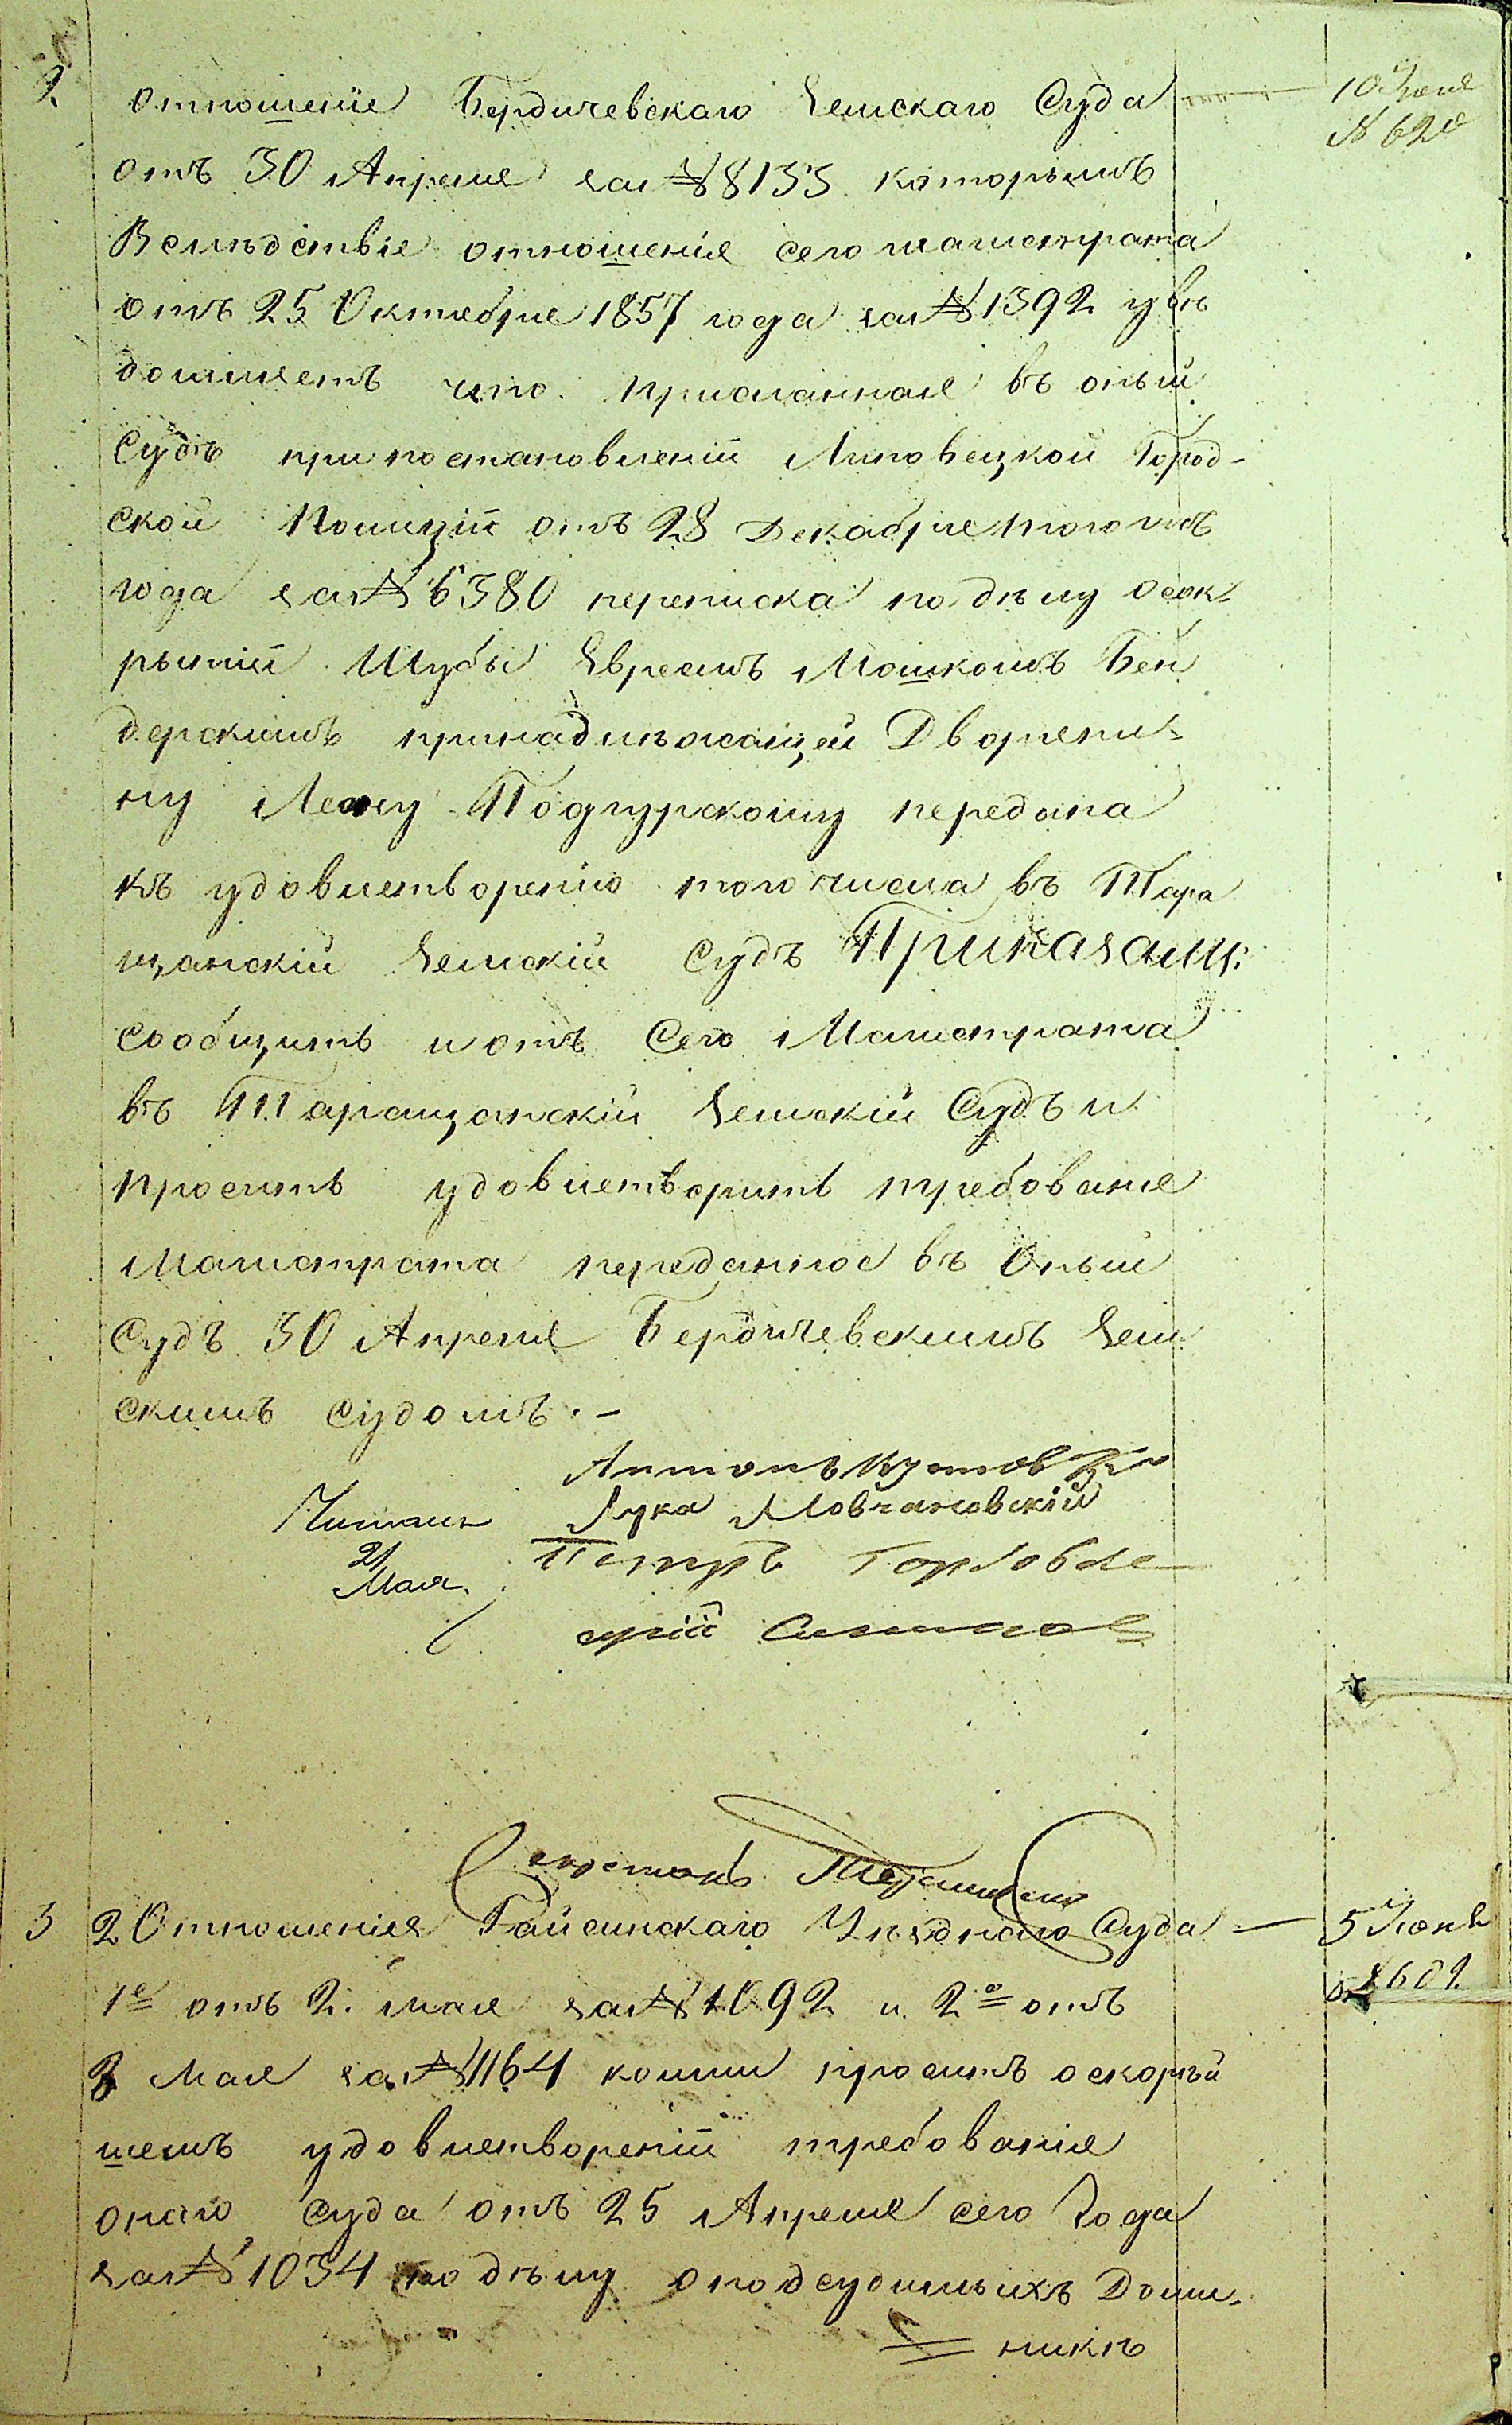 2. Отношеніе Бердичевскаго Земскаго Суда — 10 Іюня
№ 620
отъ 30 Апреля за № 8133 которымъ
Вслѣдствіе отношенія сего магистрата
отъ 25 Октебря 1857 года за № 1392 увѣ
домляетъ что присланная въ оный
Судъ при постановленіи Липовецкой Город-
ской Полиціи отъ 28 Декабря того жъ
года за № 6380 переписка по дѣлу о сок-
рытіи Шубы Евреемъ Мошкомъ Бен
дерскимъ принадлѣжащей Дворяни-
ну Леону Подгурскому передана
къ удовлетворенію того числа въ Тара
щанскій Земскій Судъ Приказали:
сообщить и отъ Сего Магистрата
въ Таращанскій Земскій Судъ и
просить удовлетворить требованіе
Магистрата переданное въ Оный
Судъ 30 Апреля Бердичевскимъ Зем
скимъ Судомъ. –
Антонъ
Читалъ Лука Мовчановскій
21 Петръ
Мая.
Секретарь
3 2 Отношенія Гайсинскаго Уѣзднаго Суда — 5 Іюня
1е отъ 2. Мая за № 1092 и 2о отъ
8 Мая за № 1164 коими проситъ о скорѣй
шемъ удовлетвореніи требованія
онаго Суда отъ 25 Апреля сего Года
за № 1034 по дѣлу о подсудимыхъ Доми-
никѣ